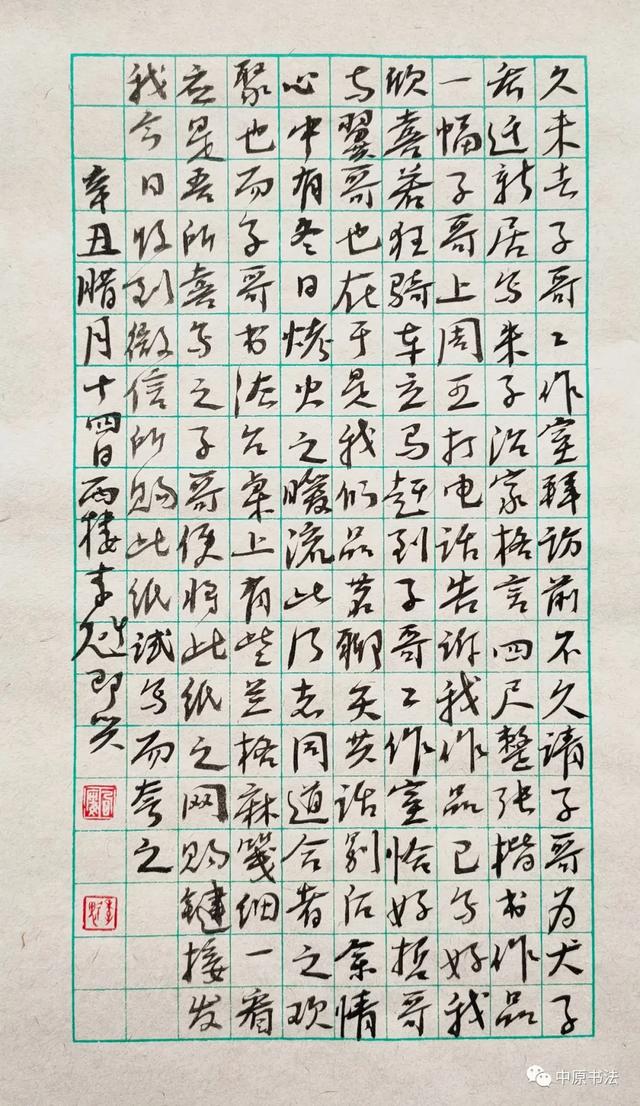 久未去子哥工作室拜访前不久请子哥为犬子
乔迁新居写朱子治家格言四尺整张楷书作品
一幅子哥上周五打电话告诉我作品已写好我
欣喜若狂骑车立马赶到子哥工作室恰好哲哥
与翼哥也在于是我们品茗聊天共话别后余情
心中有冬日烤火之暖流此乃志同道合者之欢
聚也而子哥书法台桌上有些兰格麻笺细一看
应是吾所喜写之子哥便将此纸之网赐键接发
我今日收到微信所赐此纸试写而夸之
辛丑腊月十四日西楼李魁即兴
中原书法